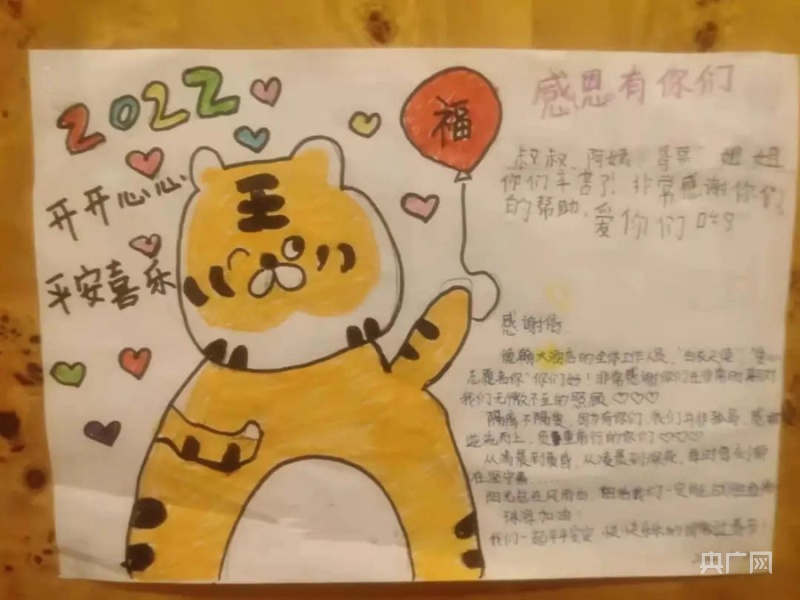 2022
开开心心
平安喜乐
王
福
感恩有你们
叔叔、阿姨、哥哥、姐姐
你们辛苦了！非常感谢你们
的帮助，爱你们
感谢信
德翰大酒店的全体工作人员、"白衣天使"
志愿者你"你们好！非常感谢你们在非常时期对
我们无微不至的照顾♡♡♡
隔离不隔爱，因为有你们，我们并非孤单，感谢
逆光而上，负重前行的你们♡♡♡
从清晨到黄昏，从凌晨到深夜，每时每刻都
在坚守着......
阳光总在风雨后，相信我们一定能
加油！
我们一起平平安安、快快乐乐的过春节！
央广网